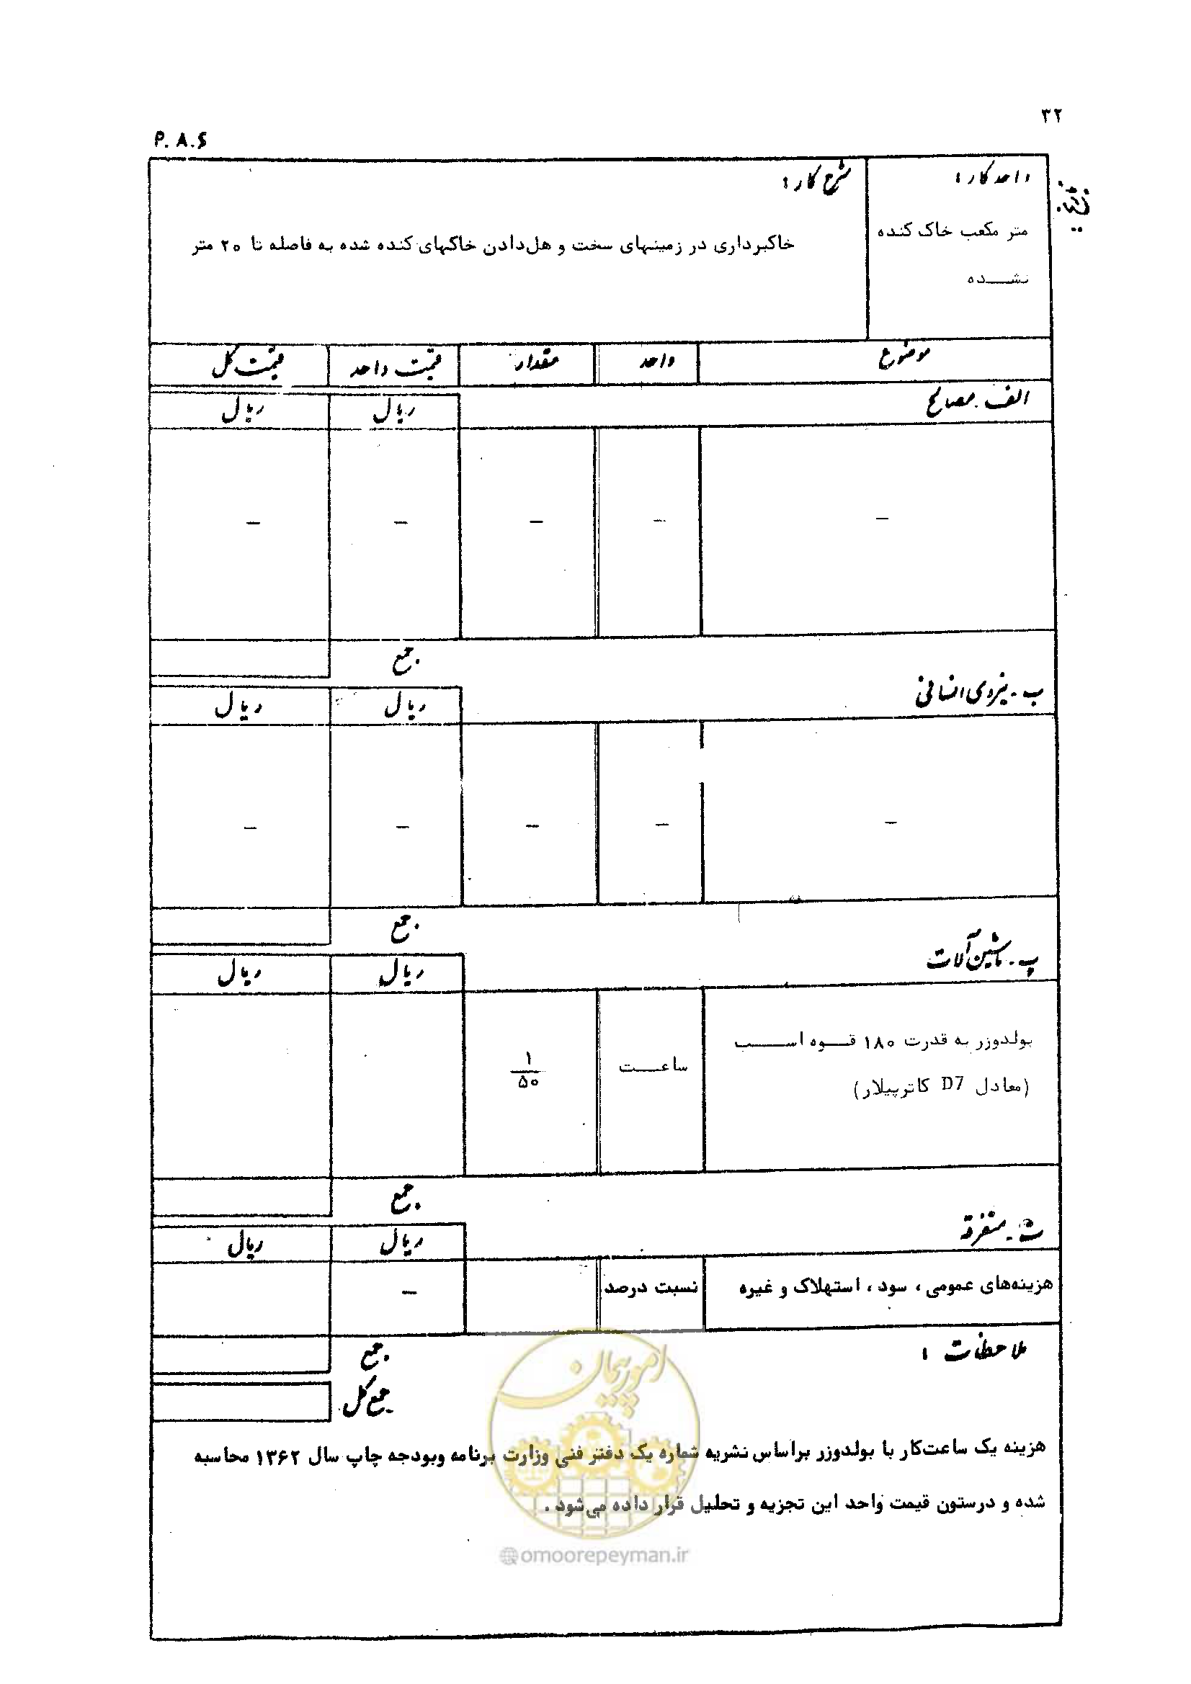 ۳۲
P.A.S
واحد کار :
متر مکعب خاک کنده
نشده
شرح کار :
خاکبرداری در زمینهای سخت و هل‌دادن خاکهای کنده شده به فاصله تا ۲۰ متر
موضوع واحد مقدار قیمت واحد قیمت کل
الف - مصالح ریال ریال
– – – – –
جمع
ب - نیروی انسانی ریال ریال
– – – – –
جمع
پ - ماشین‌آلات ریال ریال
بولدوزر به قدرت ۱۸۰ قوه اسب
(معادل D7 کاترپیلار)
ساعت ۱/۵۰
جمع
ث - متفرقه ریال ریال
هزینه‌های عمومی ، سود ، استهلاک و غیره نسبت درصد –
جمع
جمع کل
ملاحظات :
هزینه یک ساعت‌کار با بولدوزر براساس نشریه شماره یک دفتر فنی وزارت برنامه وبودجه چاپ سال ۱۳۶۲ محاسبه
شده و درستون قیمت واحد این تجزیه و تحلیل قرار داده می‌شود .
امور پیمان
@omoorepeyman.ir